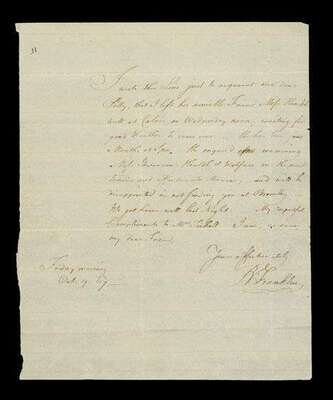 11
I write this Line just to acquaint our dear
Polly, that I left her amiable Friend Miss
well at Calais on Wednesday noon, waiting for
good Weather to come over. She has been
Month at Spa. She enquired after
Miss Health & Welfare in the most
and affectionate Manner and will be
disappointed in not finding you at Bromley
We got home well last Night. My respectful
Compliments to Mrs. I am, as ever,
my dear Friend,
Yours affectionately
B Franklin
Friday morning
Oct. 9. 67